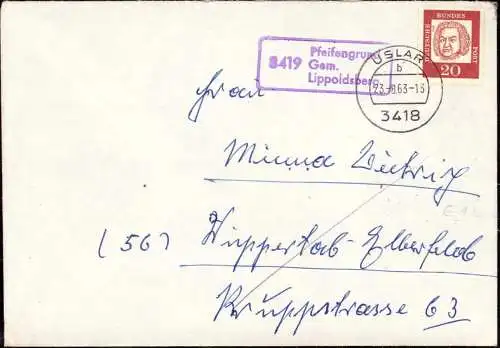 DEUTSCHE BUNDESPOST
20
8419 Pfeifengrund
Gem.
Lippoldsberg
USLAR
b
23.-63-13
3418
Frau
Minna
(56) Wuppertal-Elberfeld
Kruppstrasse 63